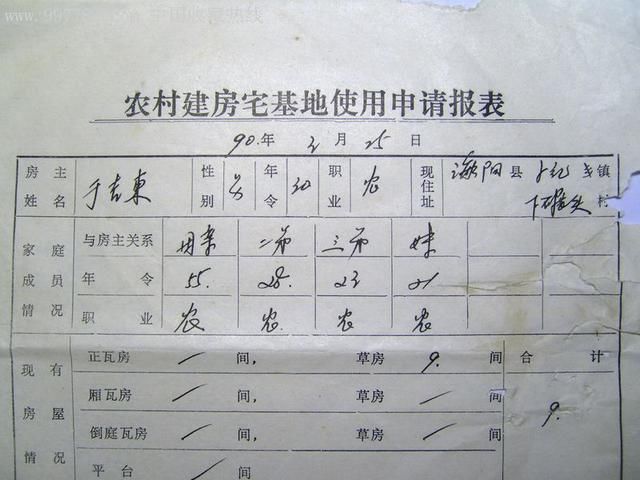 农村建房宅基地使用申请报表
90.年 2月25日
房主姓名 于吉東 性别 男 年令 30 职业 农 现住址 濮阳县 乡镇 村
家庭成员情况 与房主关系 母亲 二弟 三弟 妹
年令 55. 28. 23 21
职业 农 农 农 农
现有房屋情况 正瓦房 / 间, 草房 9. 间 合计
厢瓦房 / 间, 草房 / 间 9.
倒庭瓦房 / 间, 草房 / 间
平台 / 间